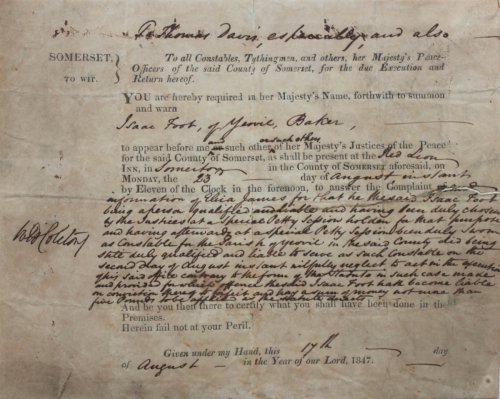 To Thomas Davis, especially, and also
SOMERSET, To all Constables, Tythingmen, and others, her Majesty's Peace-
TO WIT. Officers of the said County of Somerset, for the due Execution and
Return hereof.
YOU are hereby required in her Majesty's Name, forthwith to summon
and warn
Isaac Foot, of Yeovil, Baker,
and or such others
to appear before me such other of her Majesty's Justices of the Peace
for the said County of Somerset, as shall be present at the Red Lion
INN, in Somerton in the County of Somerset aforesaid, on
MONDAY, the 23 day of August instant
by Eleven of the Clock in the forenoon, to answer the Complaint and
information of James for that he the said Isaac Foot
being a person qualified and liable and having been duly chosen
by the Justices at a Special Petty Session holden for that purpose
and having afterwards at a special Petty Session been duly sworn
as Constable for the Parish of Yeovil in the said County did being
still duly qualified and liable to serve as such Constable on the
second day of August instant wilfully neglect to act in the execution
of his said office contrary to the form of the Statute in such case made
and provided for which offence the said Isaac Foot hath become liable
on conviction thereof to forfeit and pay a sum of money not more than
five Pounds to be applied as the Statute directs
And be you then there to certify what you shall have been done in the
Premises.
Herein fail not at your Peril.
Given under my Hand, this 17th day
of August in the Year of our Lord, 1847.